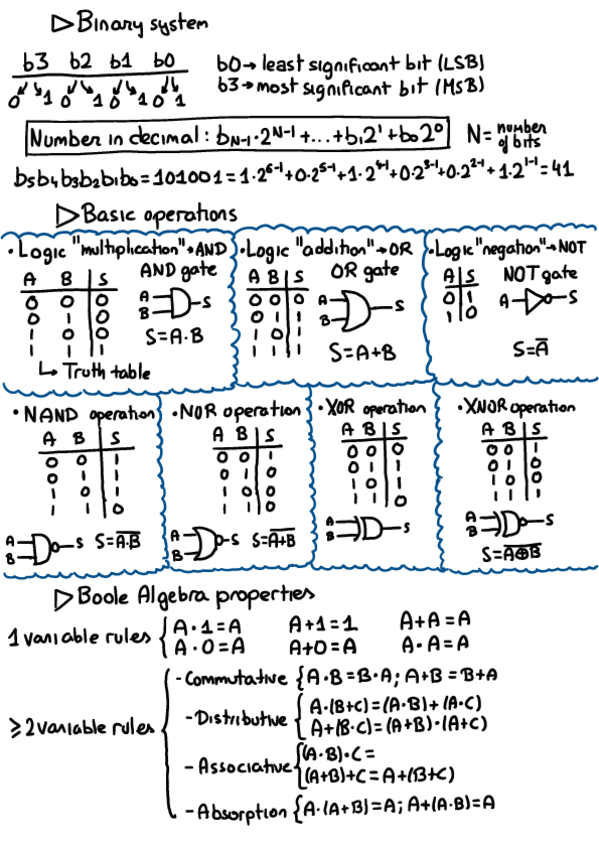 ▷ Binary system
b3 b2 b1 b0
0 1 0 1 0 1 0 1
b0→ least significant bit (LSB)
b3→ most significant bit (MSB)
Number in decimal: b_{N-1}·2^{N-1}+...+b₁2¹+b₀2⁰
N= number of bits
b₅b₄b₃b₂b₁b₀=101001=1·2^{6-1}+0·2^{5-1}+1·2^{4-1}+0·2^{3-1}+0·2^{2-1}+1·2^{1-1}=41
▷ Basic operations
· Logic "multiplication"→AND
A B S
0 0 0
0 1 0
1 0 0
1 1 1
↳ Truth table
AND gate
A
B
S
S=A·B
· Logic "addition"→OR
A B S
0 0 0
0 1 1
1 0 1
1 1 1
OR gate
A
B
S
S=A+B
· Logic "negation"→NOT
A S
0 1
1 0
NOT gate
A S
S=A̅
· NAND operation
A B S
0 0 1
0 1 1
1 0 1
1 1 0
A
B
S
S=A̅·̅B̅
· NOR operation
A B S
0 0 1
0 1 0
1 0 0
1 1 0
A
B
S
S=A̅+̅B̅
· XOR operation
A B S
0 0 0
0 1 1
1 0 1
1 1 0
A
B
S
· XNOR operation
A B S
0 0 1
0 1 0
1 0 0
1 1 1
A
B
S
S=A̅⊕̅B̅
▷ Boole Algebra properties
1 variable rules
A·1=A A+1=1 A+A=A
A·0=A A+0=A A·A=A
≥2 variable rules
- Commutative {A·B=B·A; A+B=B+A
- Distributive
A·(B+C)=(A·B)+(A·C)
A+(B·C)=(A+B)·(A+C)
- Associative
(A·B)·C=
(A+B)+C=A+(B+C)
- Absorption {A·(A+B)=A; A+(A·B)=A